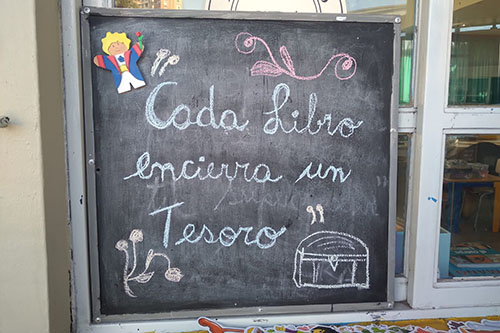 Cada Libro
encierra un
Tesoro